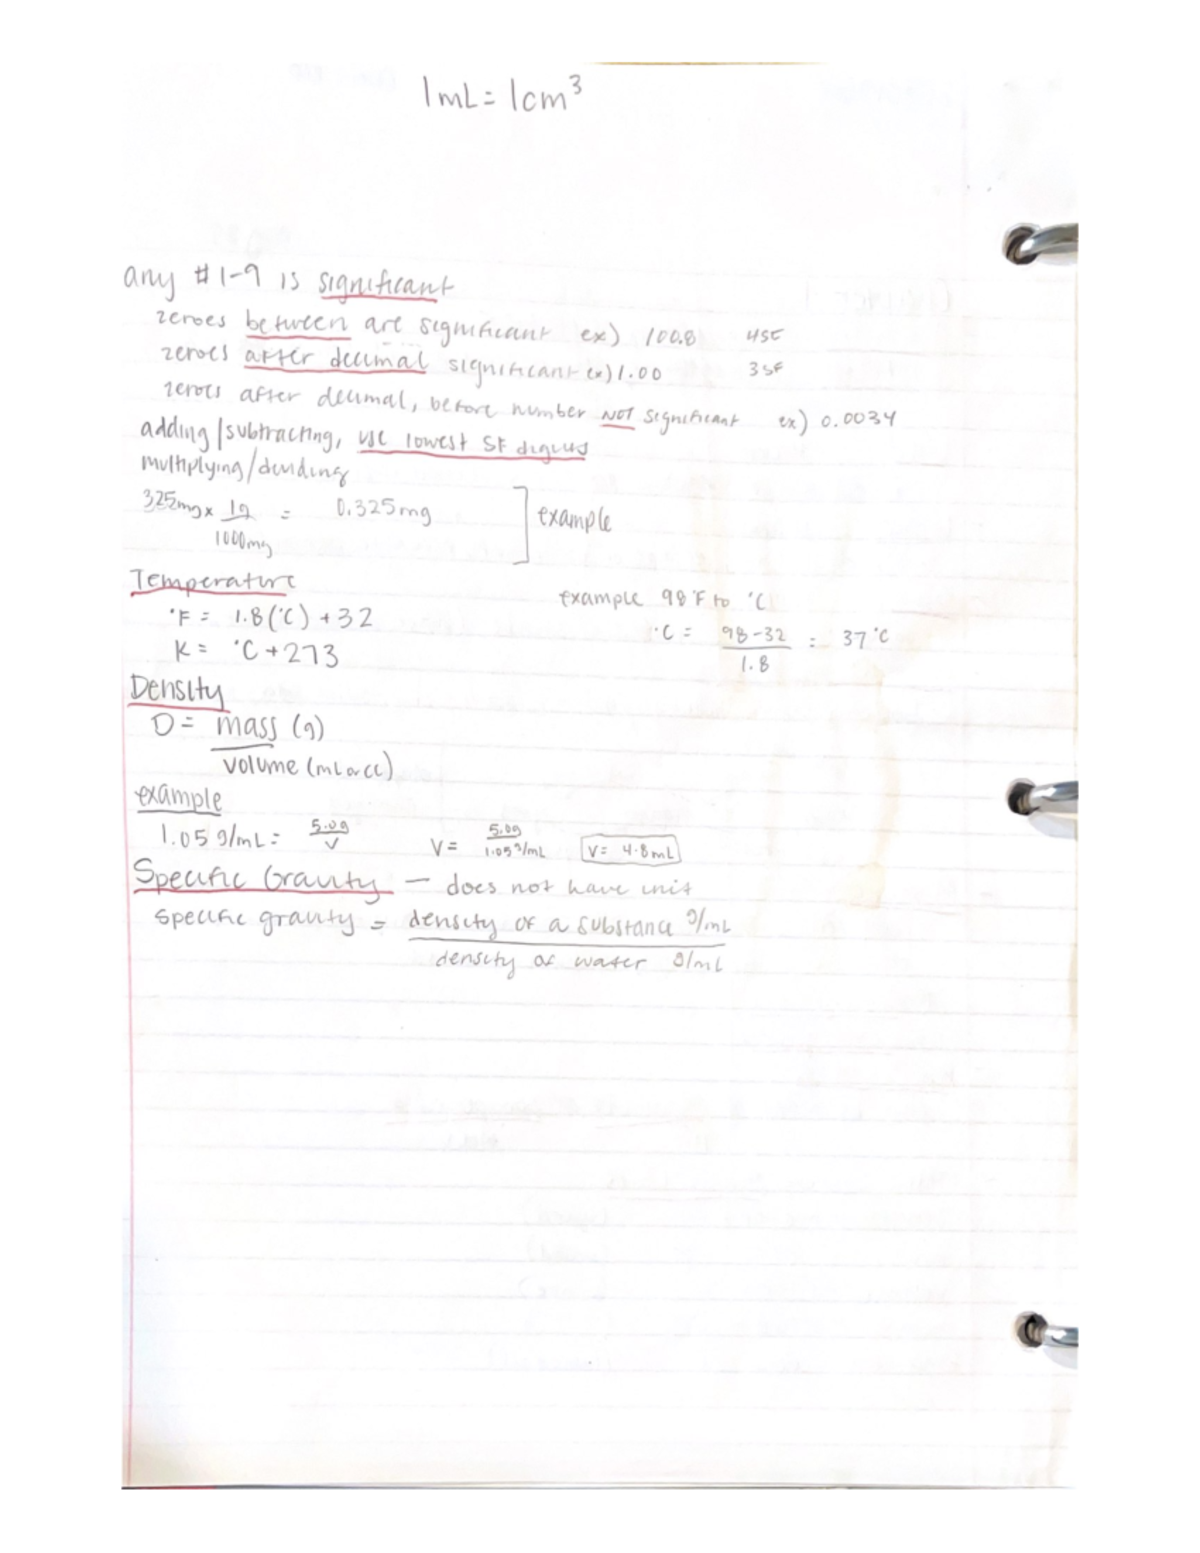 1mL = 1cm³
any #1-9 is significant
zeroes between are significant ex) 100.8 4SF
zeroes after decimal significant ex) 1.00 3SF
zeroes after decimal, before number NOT significant ex) 0.0034
adding/subtracting, use lowest SF digits
multiplying/dividing
325mg x 1g = 0.325mg ] example
1000mg
Temperature
example 98°F to °C
°F = 1.8(°C) + 32
°C = 98-32 = 37°C
1.8
K = °C + 273
Density
D = mass (g)
volume (mL or cc)
example
1.05 g/mL = 5.0g V = 5.0g V = 4.8mL
V 1.05 g/mL
Specific Gravity — does not have unit
specific gravity = density of a substance g/mL
density of water g/mL